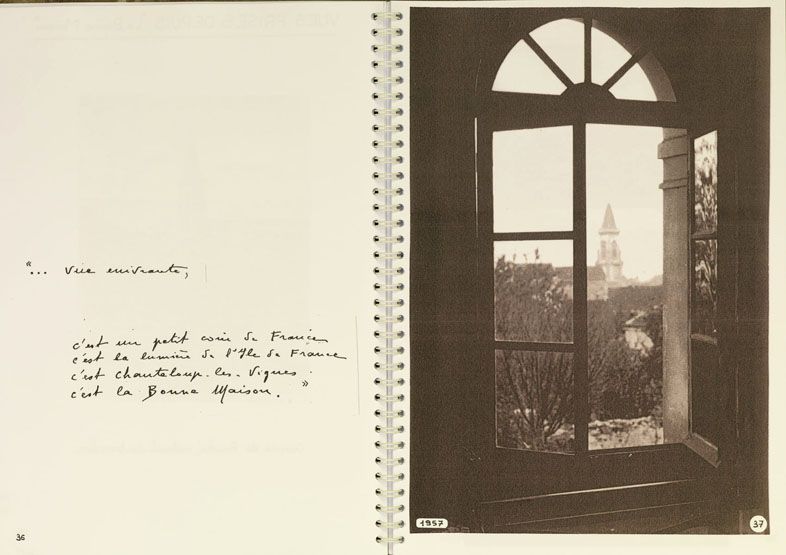 "... vue enivrante,
c'est un petit coin de France
c'est la lumière de l'Ile de France
c'est Chanteloup-les-Vignes.
c'est la Bonne Maison."
36
1957
37